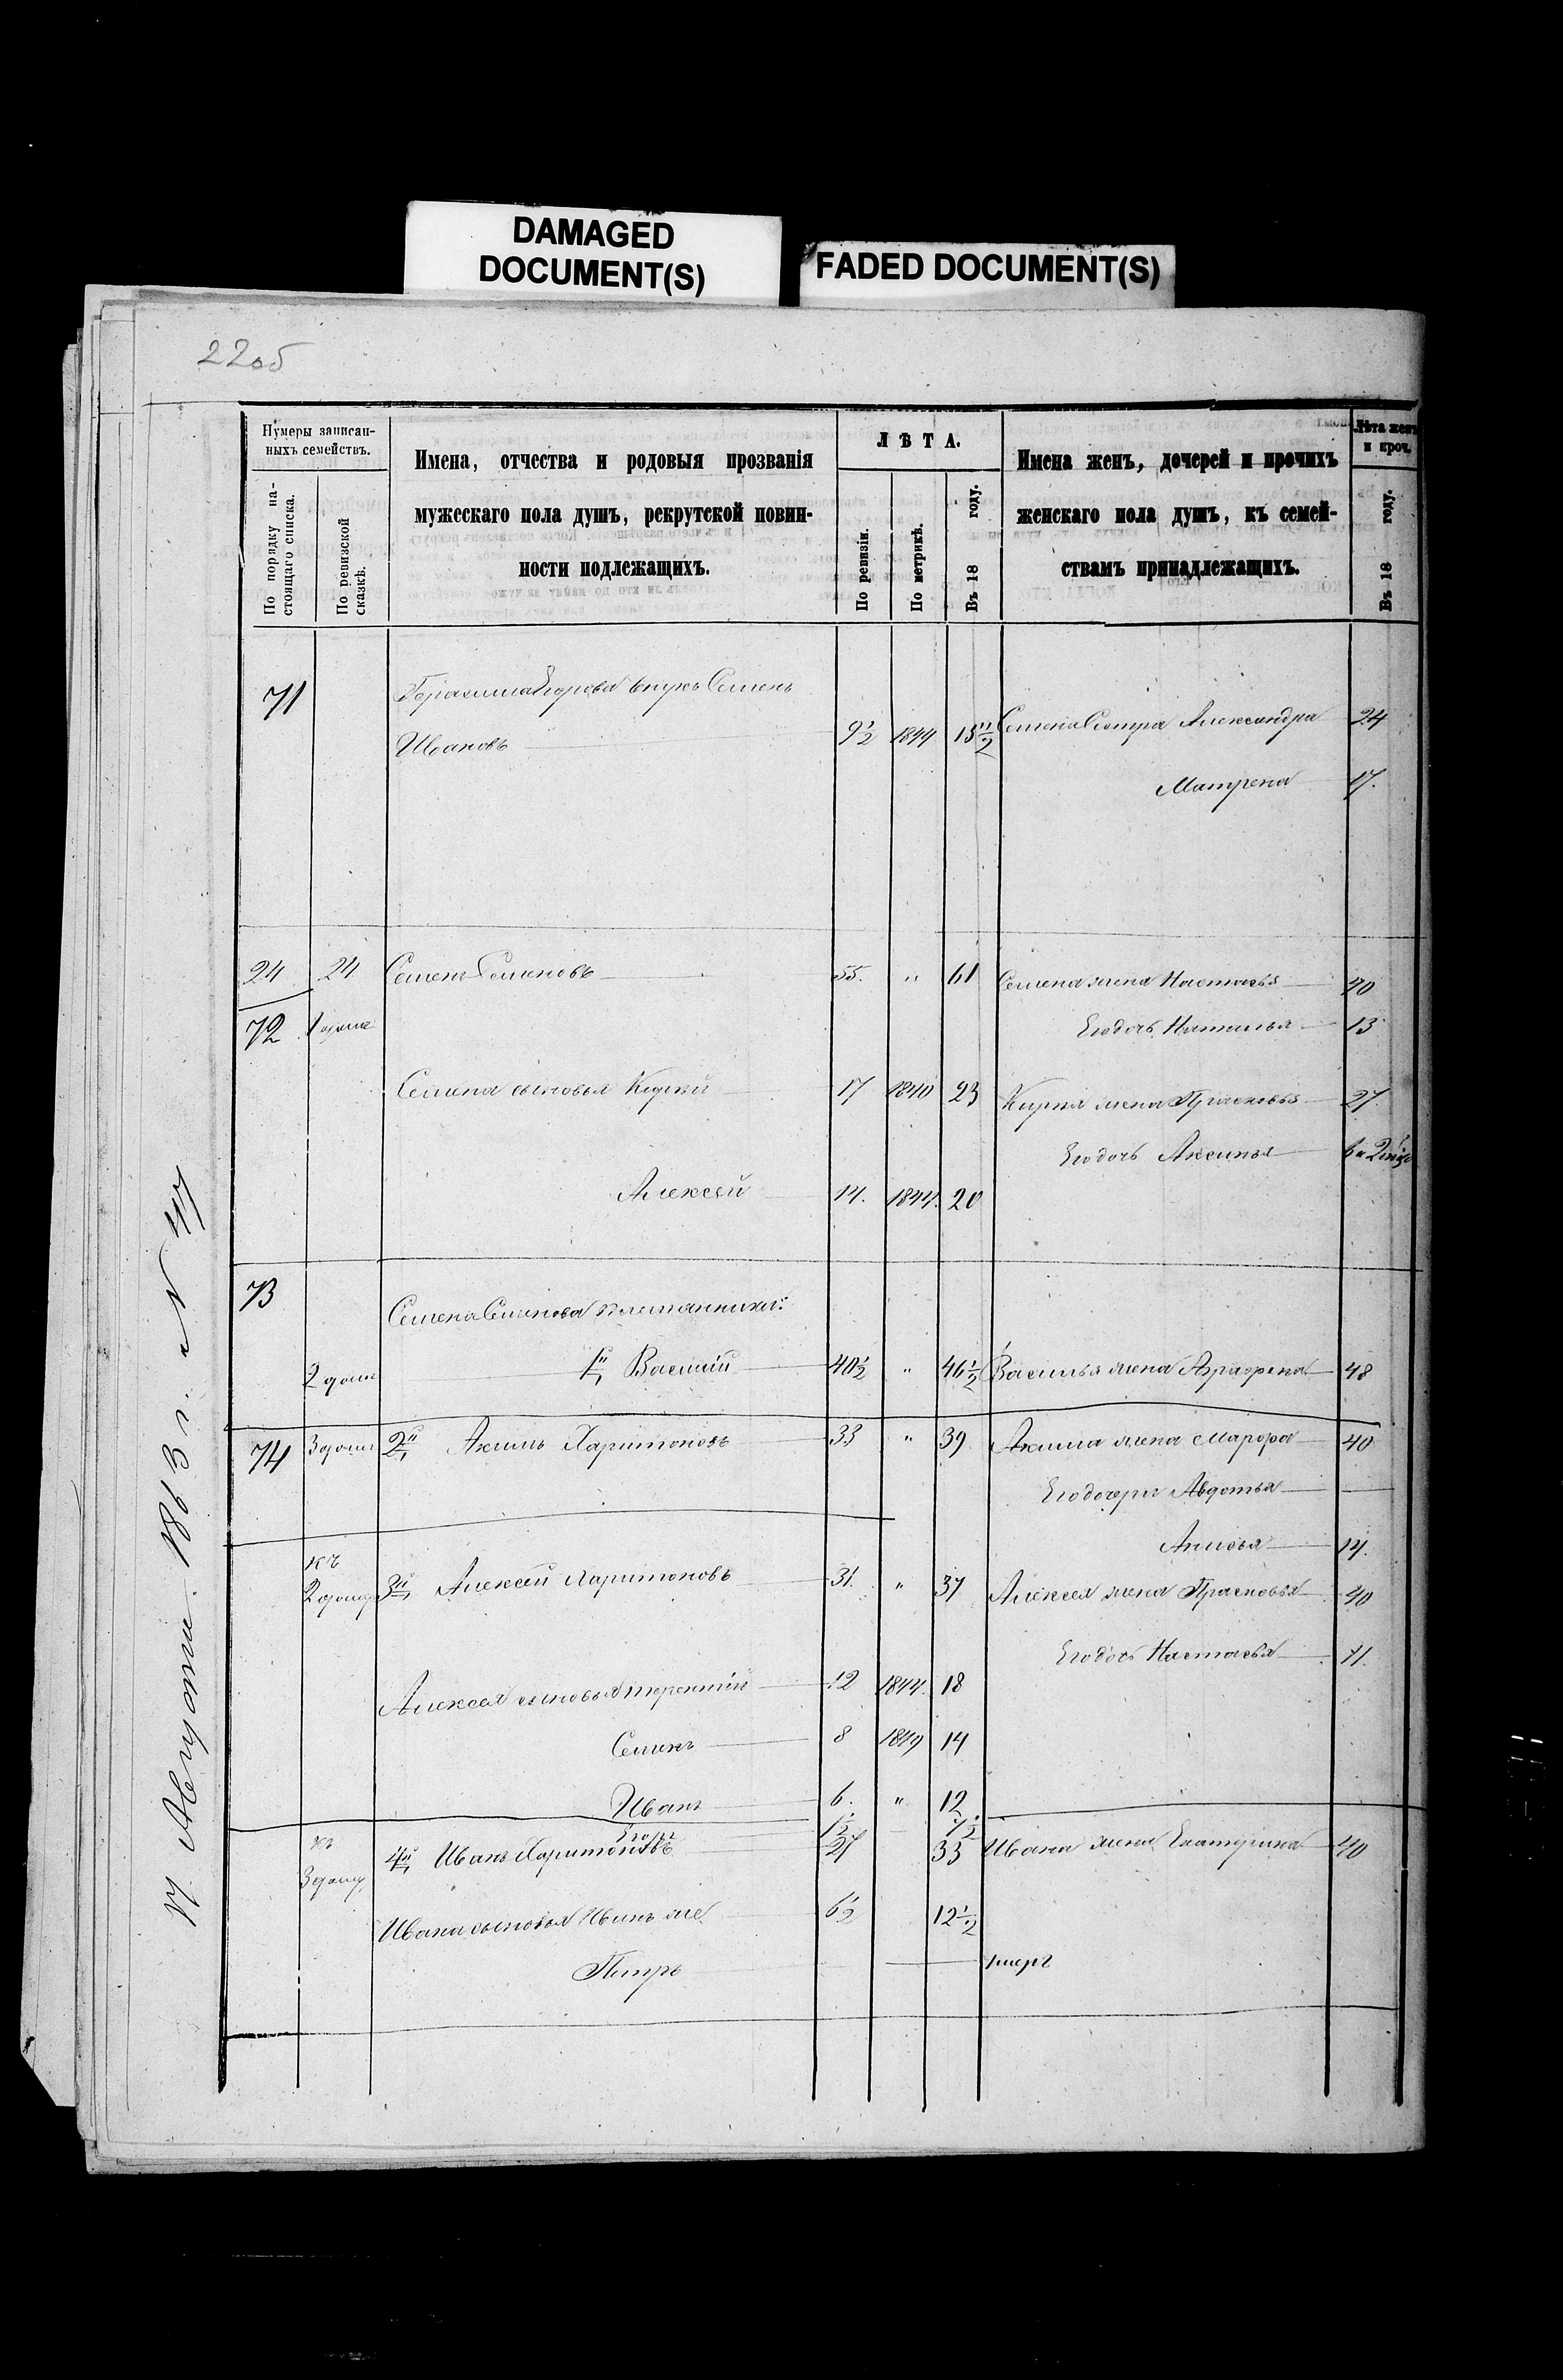 DAMAGED
DOCUMENT(S)
FADED DOCUMENT(S)
22об
Нумеры записан-
ныхъ семействъ.
По порядку на-
стоящаго списка.
По ревизской
сказкѣ.
Имена, отчества и родовыя прозванія
мужескаго пола душъ, рекрутской повин-
ности подлежащихъ.
ЛѢТА.
По ревизіи.
По метрикѣ.
Въ 18 году.
Имена женъ, дочерей и прочихъ
женскаго пола душъ, къ семей-
ствамъ принадлежащихъ.
Лѣта женъ
и проч.
Въ 18 году.
71 Герасима Егорова внукъ Семенъ
Ивановъ 9½ 1844 Семена Сестра Александра 24
Матрена 17.
24 24 Семенъ Семеновъ 55. " 61 Семена жена Настасья
72 1 доме Его дочь Наталья 13
Семена сыновья 17 1840 23 жена Прасковья 27
Его дочь Аксинья
Алексей 14. 1844. 20
73 Семена Семенова племянники:
2 доме 1й Василій 40½ " 46½ Василья жена Аграфена 48
74 3 доме 2й Акимъ Харитоновъ 33 " 39 Акима жена Марфа 40
Его дочери Авдотья
14.
къ
2 дому 3й Алексей Харитоновъ 31. " 37 Алексея жена Прасковья 40
Его дочь Настасья 11.
Алексея сыновья Терентій 12 1844. 18
Семенъ 8 1849 14
Иванъ 6. " 12
Егоръ ½ 7½
къ
3 дому 4й Иванъ Харитоновъ 27 33 Ивана жена Екатерина 40
Ивана сыновья Иванъ же 6½ 12½
Петръ умеръ
17 Августа 1863 г. N 47